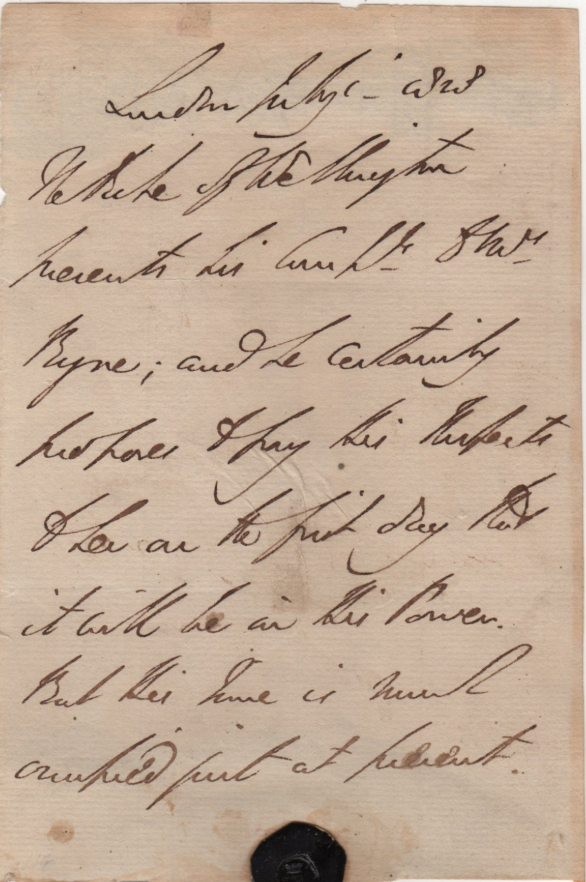 London July 1 - 1828
The Duke of Wellington
presents his Compts to Mrs
Byne; and he certainly
proposes to pay His Respects
to her on the first day that
it will be in His Power.
But His Time is much
occupied just at present.